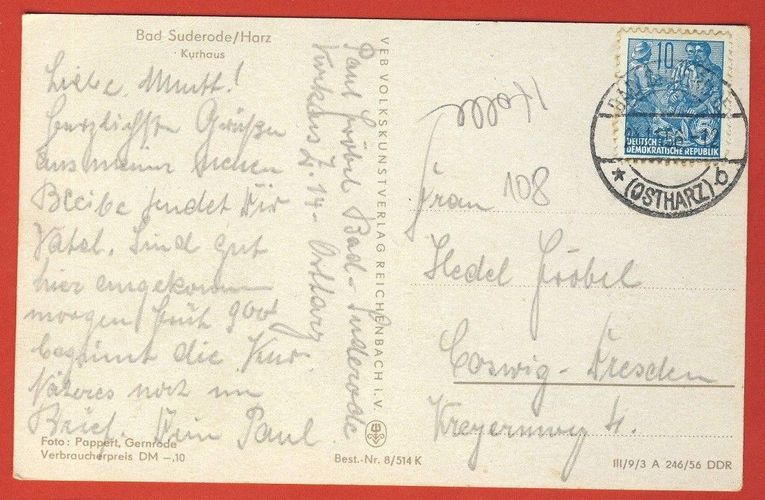 Bad Suderode/Harz
Kurhaus
Liebe Mutti!
Herzlichste Grüße
aus meiner neuen
Bleibe sendet Dir
Vatel. Sind gut
hier angekomm
morgen früh 9°°
beginnt die Kur.
Näheres noch im
Brief. Dein Paul
Foto: Pappert, Gernrode
Verbraucherpreis DM –,10
Paul Fröbel Bad-Suderode
Kurhaus Z. 14 - Ostharz
VEB VOLKSKUNSTVERLAG REICHENBACH I. V.
Best.-Nr. 8/514 K
10
5
DEUTSCHE
DEMOKRATISCHE REPUBLIK
BAD SUDERODE
(OSTHARZ)
b
108
Frau
Hedel Fröbel
Coswig-Dresden
Kreyernweg 4.
III/9/3 A 246/56 DDR